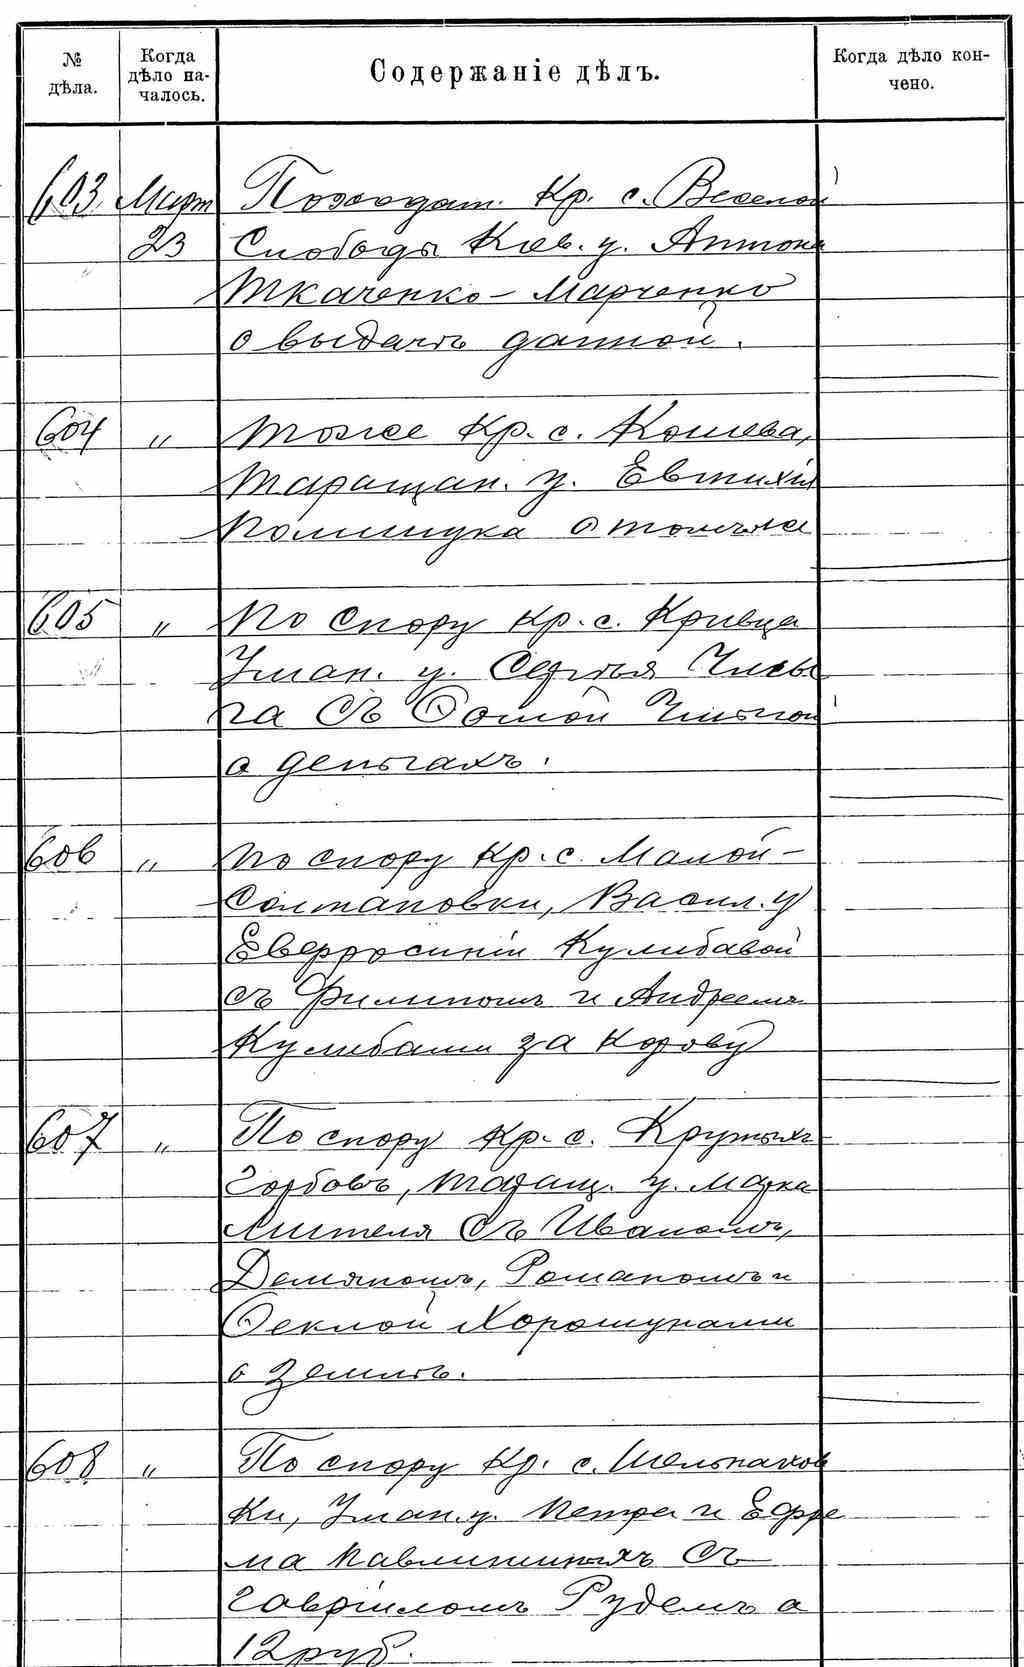 № дѣла.
Когда дѣло на-чалось.
Содержаніе дѣлъ.
Когда дѣло кон-чено.
603. Март Походат. Кр. с. Веселой
23 Слободы Кіев. у. Антона
Ткаченко-Марченко
о выдачѣ данной.
604 " Тоже Кр. с. Кошева,
Таращан. у. Евтихія
Полищука о томъже
605 " По спору кр. с. Кривца
Уман. у. Сергѣя
га съ Ѳомой
о деньгахъ.
606 " По спору кр. с. Малой-
Солтановки, Васил. у
Евфросиніи Кулибавой
съ Филипомъ и Андреемъ
Кулибами за корову
607 " По спору кр. с. Крутыхъ
Горбовъ, Таращ. у. Марка
Лителя съ Иваномъ,
Демяномъ, Романомъ и
Ѳеклой Хорошунами
о землѣ.
608 " По спору кр. с.
ки, Уман. у. Петра и Ефре
ма съ
Гавріиломъ Рудемъ о
12 руб.